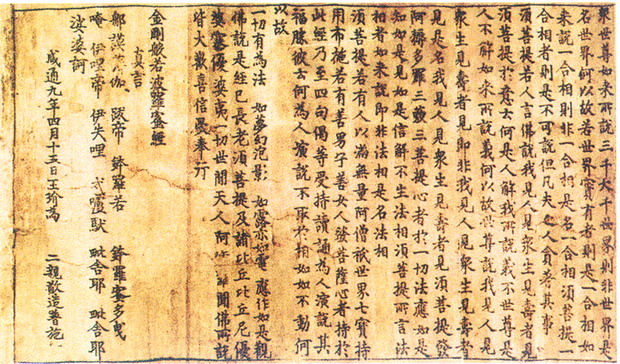 眾世尊如来所說三千大千世界則非世界是
名世界何以故若世界實有者則是一合相如
来說一合相則非一合相是名一合相須菩提一
合相者則是不可說但凡夫之人貪著其事
須菩提若人言佛說我見人見眾生見壽者見
須菩提於意云何是人解我所說義不世尊是
人不解如来所說義何以故世尊說我見人見
眾生見壽者見即非我見人見眾生見壽者
見是名我見人見眾生見壽者見須菩提發
阿耨多羅三藐三菩提心者於一切法應如是
知如是見如是信解不生法相須菩提所言法
相者如来說即非法相是名法相
須菩提若有人以滿無量阿僧祇世界七寶持
用布施若有善男子善女人發菩薩心者持於
此經乃至四句偈等受持讀誦為人演說其
福勝彼云何為人演說不取於相如如不動何
以故
一切有為法 如夢幻泡影 如露亦如電 應作如是觀
佛說是經已長老須菩提及諸比丘比丘尼優
婆塞優婆夷一切世間天人阿 聞佛所說
皆大歡喜信受奉行
金剛般若波羅蜜經
真言
謨婆伽 跋帝 鉢羅若 鉢羅蜜多曳
唵 伊哩帝 伊失哩 戍嚧馱 毗舍耶 毗舍耶
娑婆訶
咸通九年四月十五日王玠為 二親敬造普施